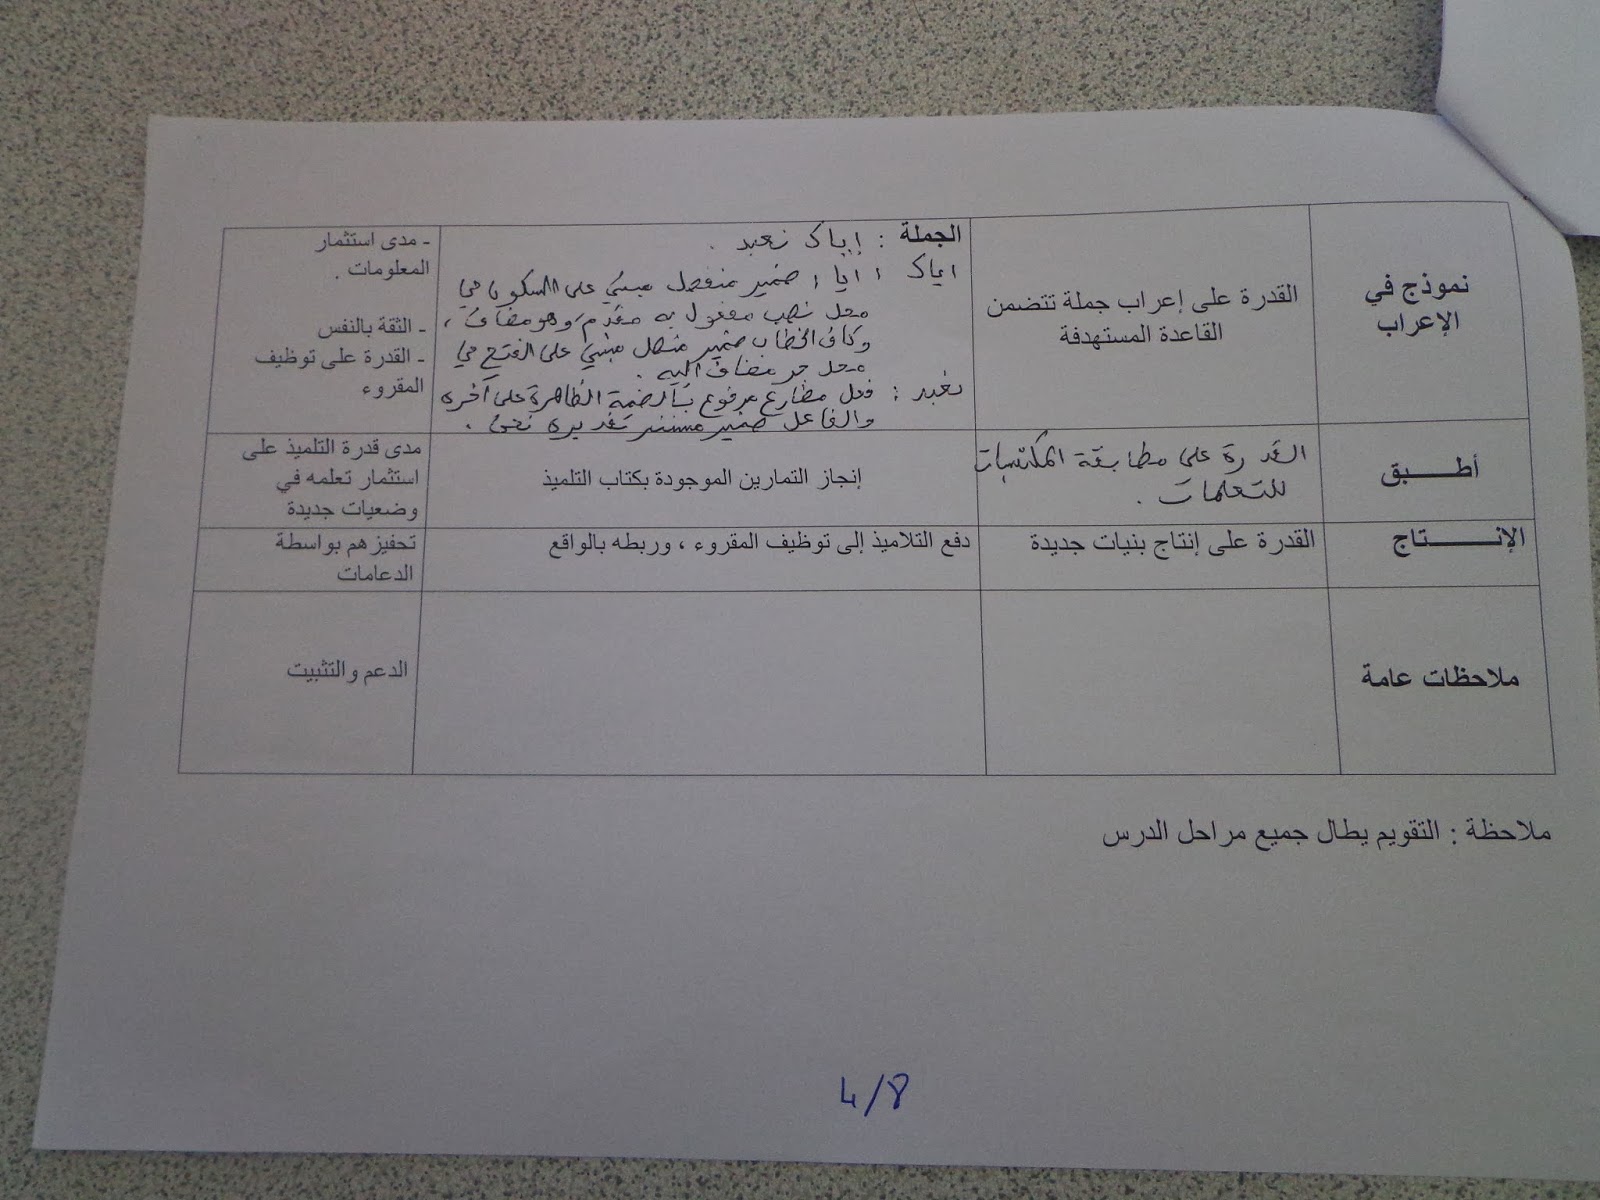 نموذج في
الإعراب
القدرة على إعراب جملة تتضمن
القاعدة المستهدفة
الجملة : إياك نعبد .
اياك : ايا : ضمير منفصل مبني على السكون في
محل نصب مفعول به مقدم، وهو مضاف ،
وكاف الخطاب ضمير متصل مبني على الفتح في
محل جر مضاف اليه .
نعبد : فعل مضارع مرفوع بالضمة الظاهرة على آخره
والفاعل ضمير مستتر تقديره نحن .
- مدى استثمار
المعلومات .
- الثقة بالنفس
- القدرة على توظيف
المقروء
أطـــبق
القدرة على مطابقة المكتسبات
للتعلمات .
إنجاز التمارين الموجودة بكتاب التلميذ
مدى قدرة التلميذ على
استثمار تعلمه في
وضعيات جديدة
الإنـــــــتاج
القدرة على إنتاج بنيات جديدة
دفع التلاميذ إلى توظيف المقروء ، وربطه بالواقع
تحفيزهم بواسطة
الدعامات
ملاحظات عامة
الدعم والتثبيت
ملاحظة : التقويم يطال جميع مراحل الدرس
4/8